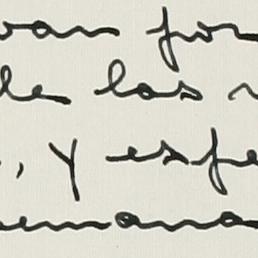 van for
de las
, y espe
emana